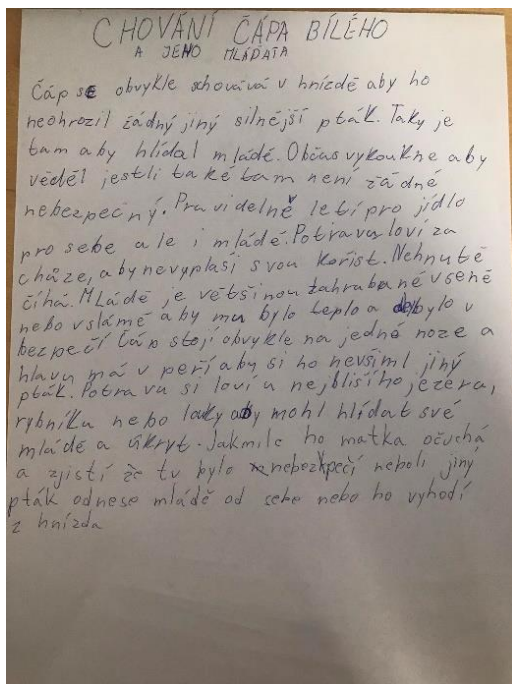 CHOVÁNÍ ČÁPA BÍLÉHO
A JEHO MLÁĎATA
Čáp se obvykle schovává v hnízdě aby ho
neohrozil žádný jiný silnější pták. Taky je
tam aby hlídal mládě. Občas vykoukne aby
věděl jestli také tam není žádné
nebezpečný. Pravidelně letí pro jídlo
pro sebe ale i mládě. Potravu loví za
chůze, aby nevyplaší svou kořist. Nehnutě
číhá. Mládě je většinou zahrabané v seně
nebo v slámě aby mu bylo teplo a bylo v
bezpečí Čáp stojí obvykle na jedné noze a
hlavu má v peří aby si ho nevšiml jiný
pták. Potravu si loví u nejblišího jezera,
rybníku nebo laky aby mohl hlídat své
mládě a úkryt. Jakmile ho matka očuchá
a zjistí že tu bylo nebezpečí neboli jiný
pták odnese mládě od sebe nebo ho vyhodí
z hnízda